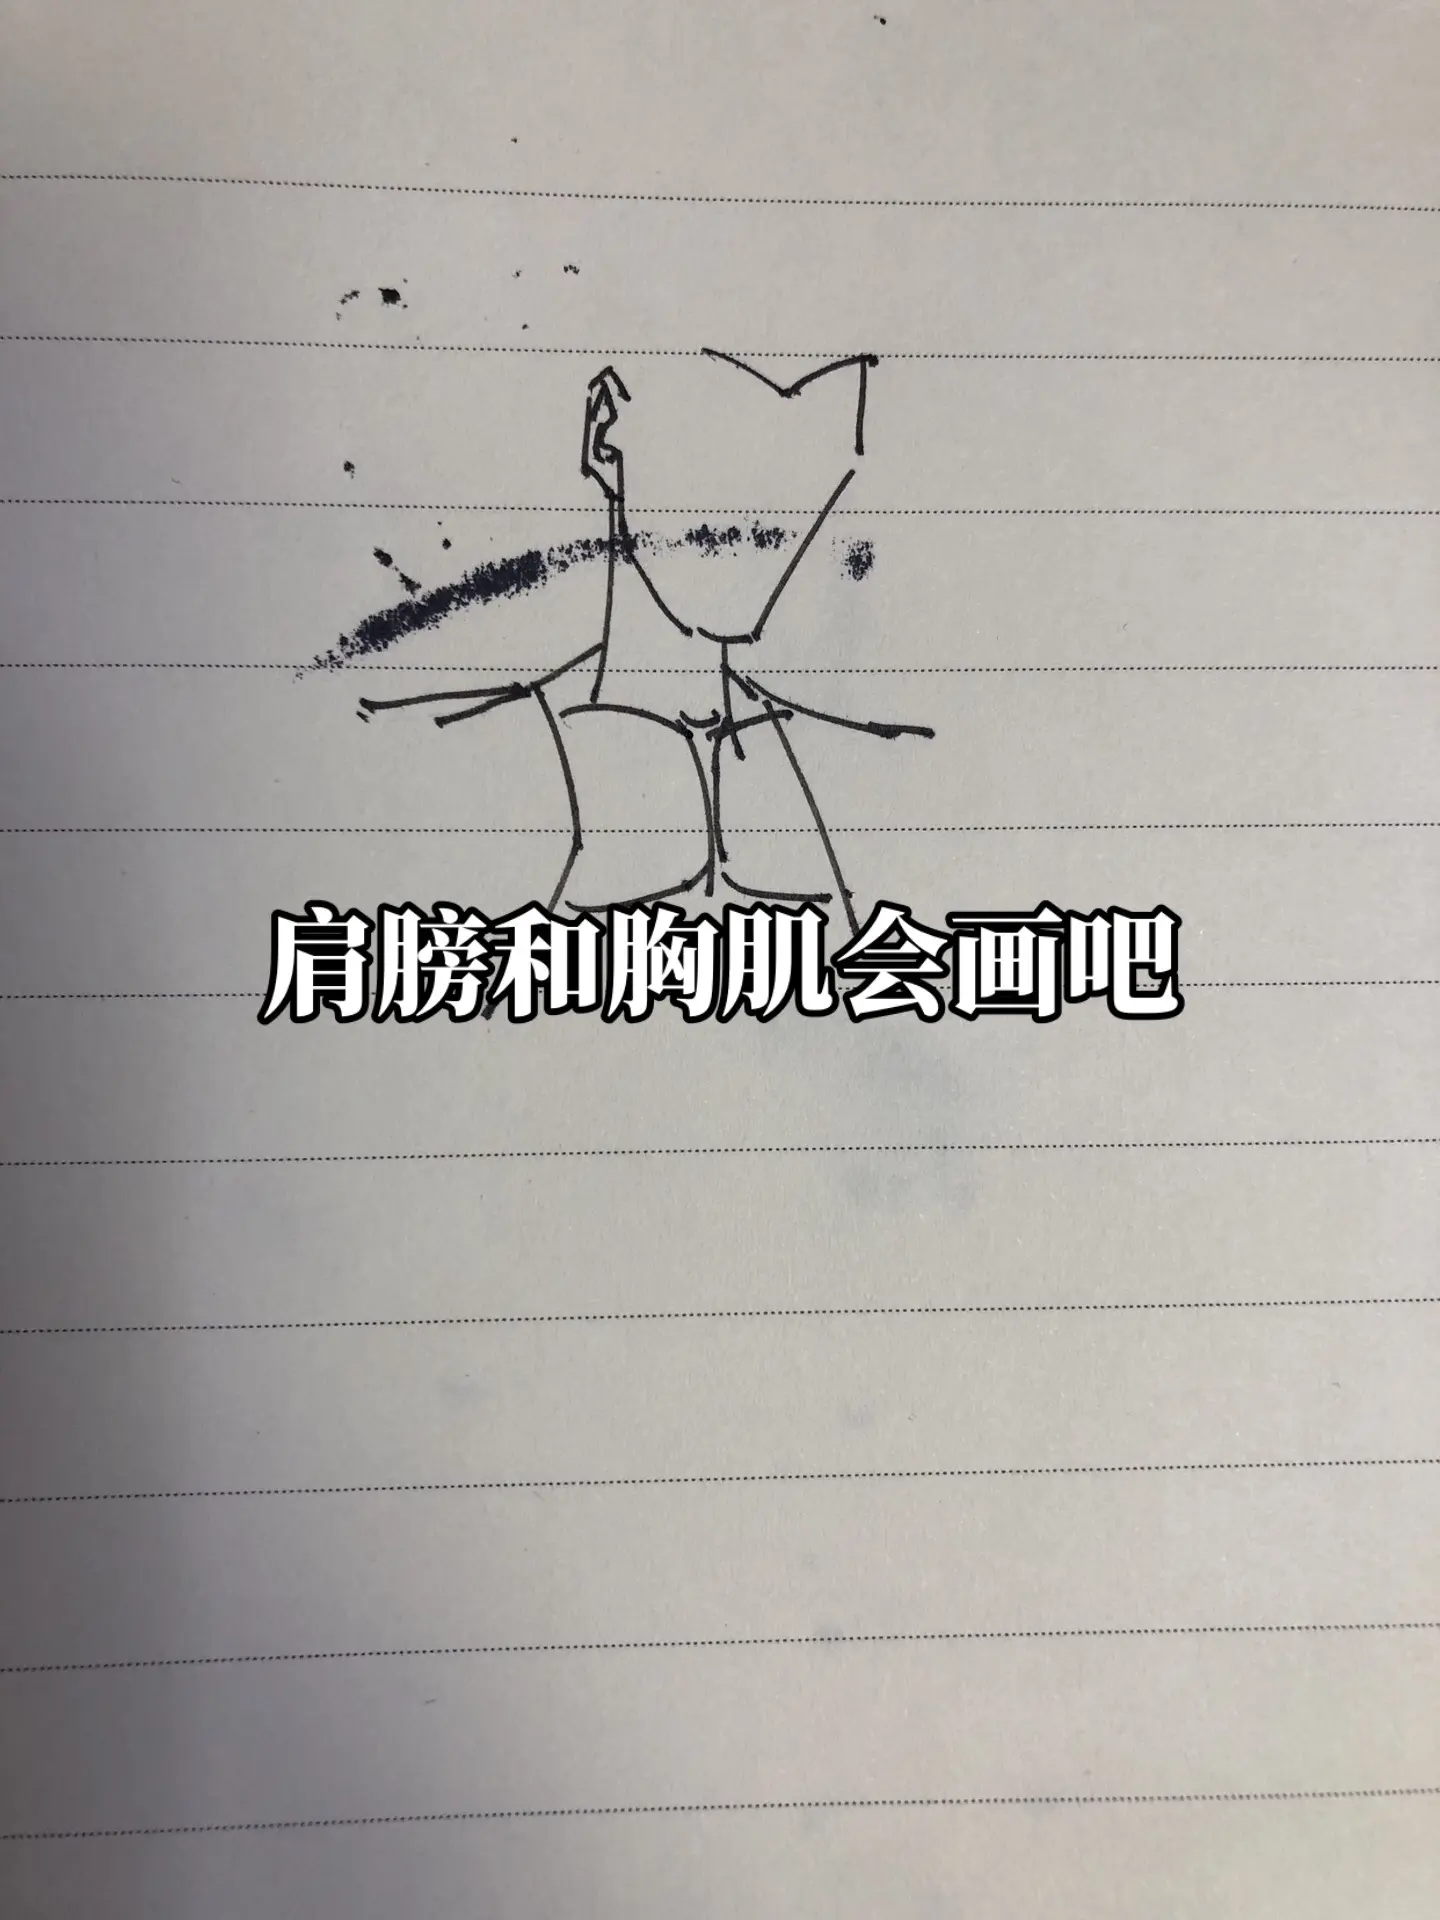 肩膀和胸肌会画吧